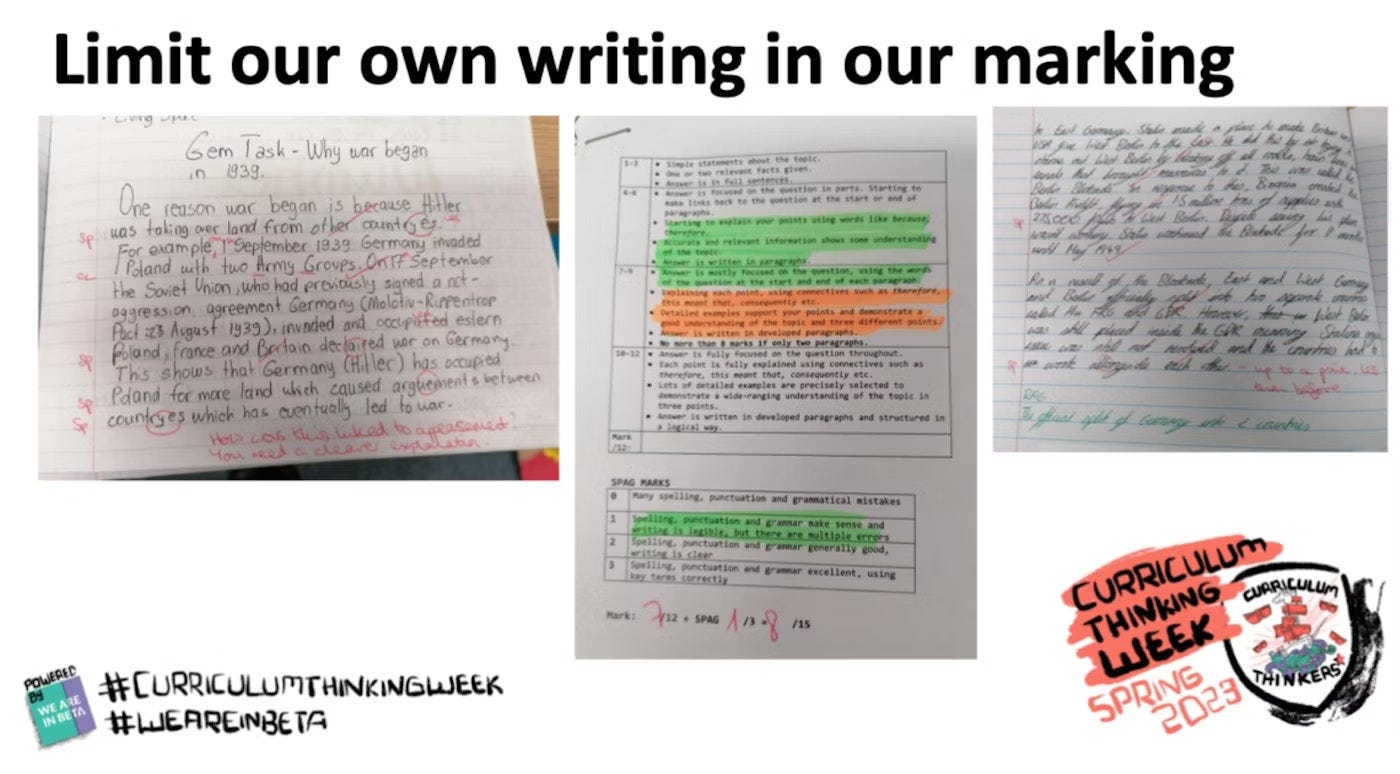 Limit our own writing in our marking
Gem Task - Why war began
in 1939.
One reason war began is because Hitler
was taking over land from other countryes.
sp
For example, 1 September 1939 Germany invaded
Poland with two Army Groups. On 17 September
the Soviet Union, who had previously signed a not-
aggression, agreement Germany (Molotiv-Rippentrop
Pact :23 August 1939), invaded and estern
Poland, France and Britain declaired war on Germany.
sp
This shows that Germany (Hitler) has occupied
Poland for more land which caused arguements between
sp
countryes which has eventually led to war.
sp
How was this linked to appeasement?
You need a clearer explanation.
1-3
Simple statements about the topic.
One or two relevant facts given.
Answer is in full sentences.
4-6
Answer is focused on the question in parts. Starting to
make links back to the question at the start or end of
paragraphs.
Starting to explain your points using words like because,
therefore.
Accurate and relevant information shows some understanding
of the topic.
Answer is written in paragraphs.
7-9
Answer is mostly focused on the question, using the words
of the question at the start and end of each paragraph
Explaining each point, using connectives such as therefore,
this meant that, consequently etc.
Detailed examples support your points and demonstrate a
good understanding of the topic and three different points.
Answer is written in developed paragraphs.
No more than 8 marks if only two paragraphs.
10-12
Answer is fully focused on the question throughout.
Each point is fully explained using connectives such as
therefore, this meant that, consequently etc.
Lots of detailed examples are precisely selected to
demonstrate a wide-ranging understanding of the topic in
three points.
Answer is written in developed paragraphs and structured in
a logical way.
Mark
/12:
SPAG MARKS
0 Many spelling, punctuation and grammatical mistakes
1 Spelling, punctuation and grammar make sense and
writing is legible, but there are multiple errors
2 Spelling, punctuation and grammar generally good,
writing is clear
3 Spelling, punctuation and grammar excellent, using
key terms correctly
Mark: 7/12 + SPAG 1/3 = 8 /15
In East Germany. Stalin made a plan to make Britain
USA give West Berlin to the East. He did this by
West Berlin by all roads,
This was called the
Berlin Blockade. In response to this,
Berlin Airlift, flying in 1.5 million tons of supplies with
275,000 to West Berlin. Despite seeing his plan
wasn't working, Stalin continued the Blockade for 11 months
until May 1949.
sp
As a result of the Blockade, East and West Germany
and Berlin officially split into two separate countries
called the FRG and GDR. However, West Berlin
was still placed inside the GDR meaning Stalin's
issue was still not resolved and the countries had to
work alongside each other. - up to a point, less
than before
sp
RAG
The official split of Germany into 2 countries
POWERED
BY
WE ARE
IN BETA
#CURRICULUMTHINKINGWEEK
#WEAREINBETA
CURRICULUM
THINKING
WEEK
SPRING
2023
CURRICULUM
THINKERS